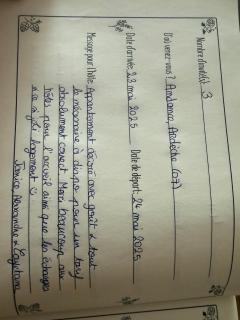 Nombre d'invité(s) : 3
D'où venez-vous ? Ardèche (07)
Date d'arrivée: 23 mai 2025 Date de départ: 24 mai 2025
Message pour l'hôte: Appartement décoré avec goût & tout
le nécessaire à dispo pour un tarif
absolument correct. Merci beaucoup aux
hôtes pour l'accueil ainsi que les échanges
logement ☺
Alexandre &